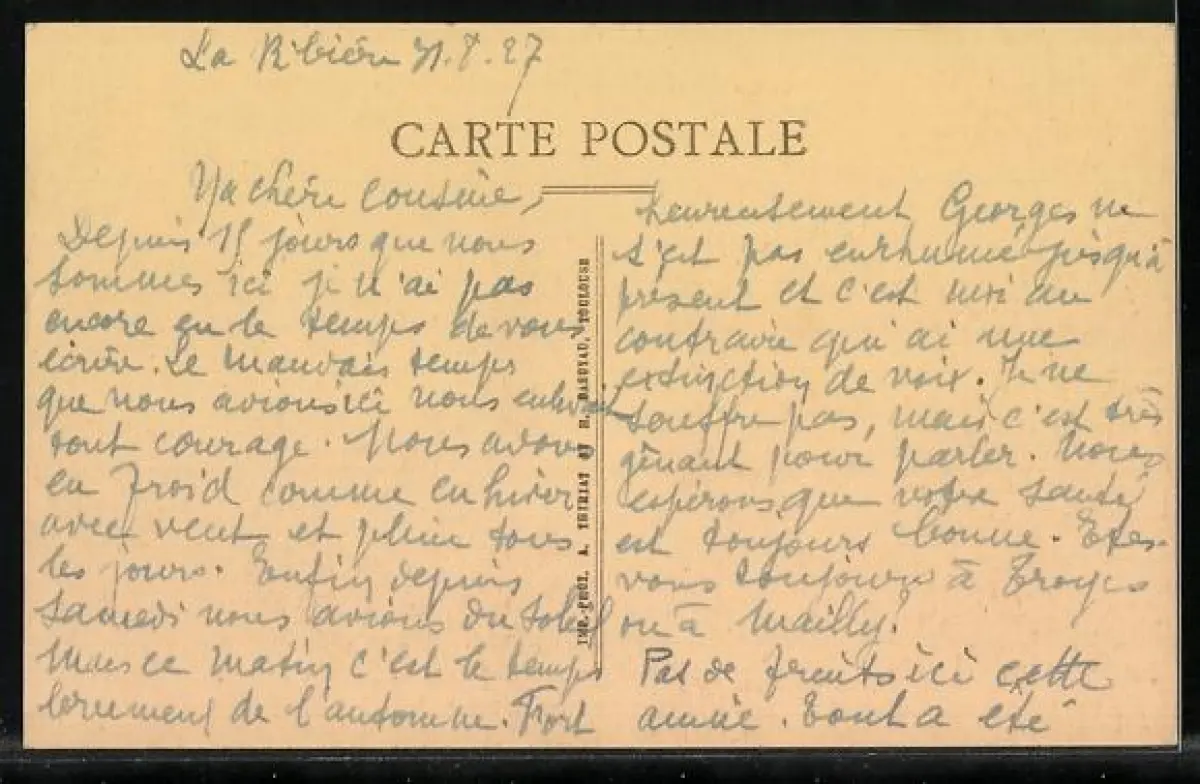 La Ribière 31.8.27
CARTE POSTALE
Ma chère Cousine,
Depuis 15 jours que nous
sommes ici je n'ai pas
encore eu le temps de vous
écrire. Le mauvais temps
que nous avions ici nous enlevait
tout courage. Nous avons
eu froid comme en hiver
avec vent et pluie tous
les jours. Enfin depuis
samedi nous avions du soleil
Mais ce matin c'est le temps
brumeux de l'automne. Fort
heureusement Georges ne
s'est pas enrhumé jusqu'à
présent et c'est moi au
contraire qui ai une
extinction de voix. Je ne
souffre pas, mais c'est très
gênant pour parler. Nous
espérons que votre santé
est toujours bonne. Etes-
vous toujours à Troyes
ou à Mailly?
Pas de fruits ici cette
année. Tout a été
IMP.-PHOT. A. THIRIAT ET H. BASUYAU, TOULOUSE